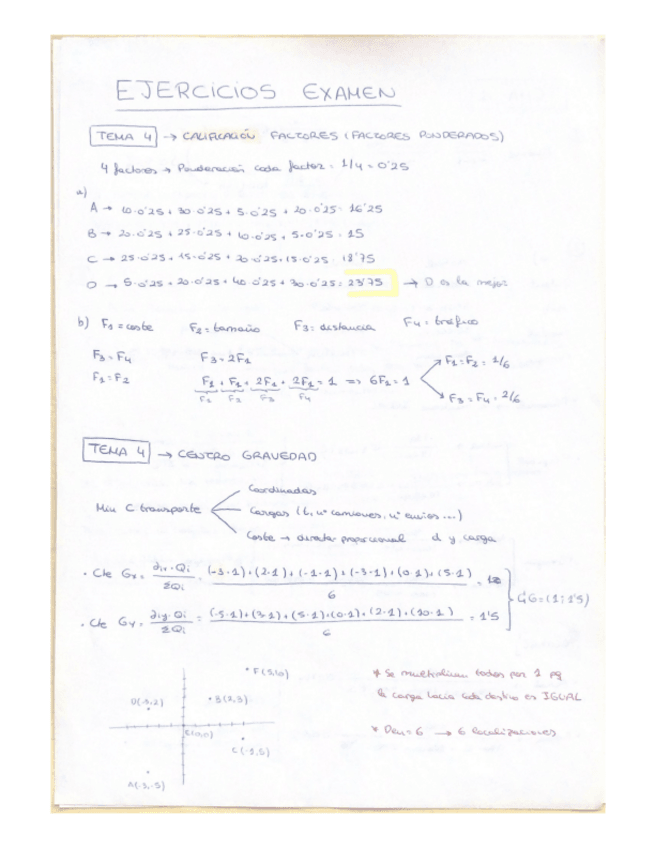 EJERCICIOS EXAMEN
TEMA 4 → CALIFICACIÓN FACTORES (FACTORES PONDERADOS)
4 factores → Ponderación cada factor = 1/4 = 0'25
a)
A → 10·0'25 + 30·0'25 + 5·0'25 + 20·0'25 = 16'25
B → 20·0'25 + 25·0'25 + 10·0'25 + 5·0'25 = 15
C → 25·0'25 + 15·0'25 + 20·0'25 + 15·0'25 = 18'75
D → 5·0'25 + 20·0'25 + 40·0'25 + 30·0'25 = 23'75 → D es la mejor
b) F1 = coste F2 = tamaño F3 = distancia F4 = tráfico
F3 = F4 F3 = 2F1
F1 = F2 F1 + F1 + 2F1 + 2F1 = 1 => 6F1 = 1
F1 = F2 = 1/6
F3 = F4 = 2/6
TEMA 4 → CENTRO GRAVEDAD
Coordinadas
Min C transporte Cargas (t, nº camiones, nº envíos ...)
Coste → direta proporcional d y carga
· Cte Gx = dix·Qi / ΣQi = (-3·1)+(2·1)+(-1·1)+(-3·1)+(0·1)+(5·1) / 6
· Cte Gy = diy·Qi / ΣQi = (-5·1)+(3·1)+(5·1)+(0·1)+(2·1)+(10·1) / 6 = 1'5
CG = (1; 1'5)
F(5,10)
D(-3,2) B(2,3)
E(0,0)
A(-3,-5)
* Se multiplican todos por 1 pq
la carga hacia cada destino es IGUAL
* Den = 6 → 6 localizaciones